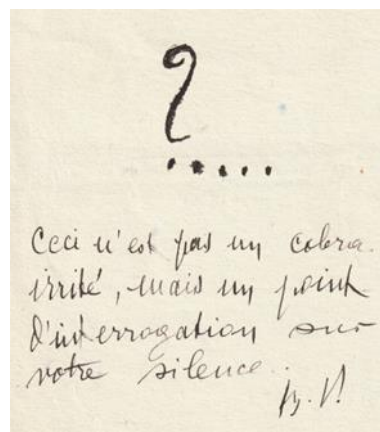 ?
.....
Ceci n'est pas un cobra
irrité, mais un point
d'interrogation sur
votre silence..